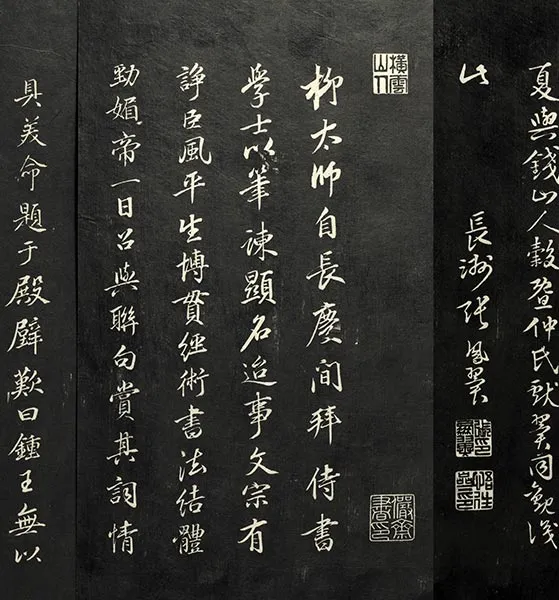 夏與錢山人穀暨仲氏獻翼同觀識
此
長洲張鳳翼
橫雲山人
柳太師自長慶間拜侍書
學士以筆諫顯名迨事文宗有
諍臣風平生博貫經術書法結體
勁媚帝一日召與聯句賞其詞情
具美命題于殿壁歎曰鍾王無以